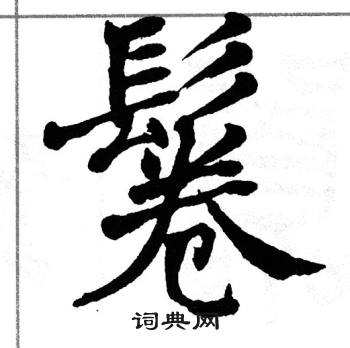 鬈
词典网